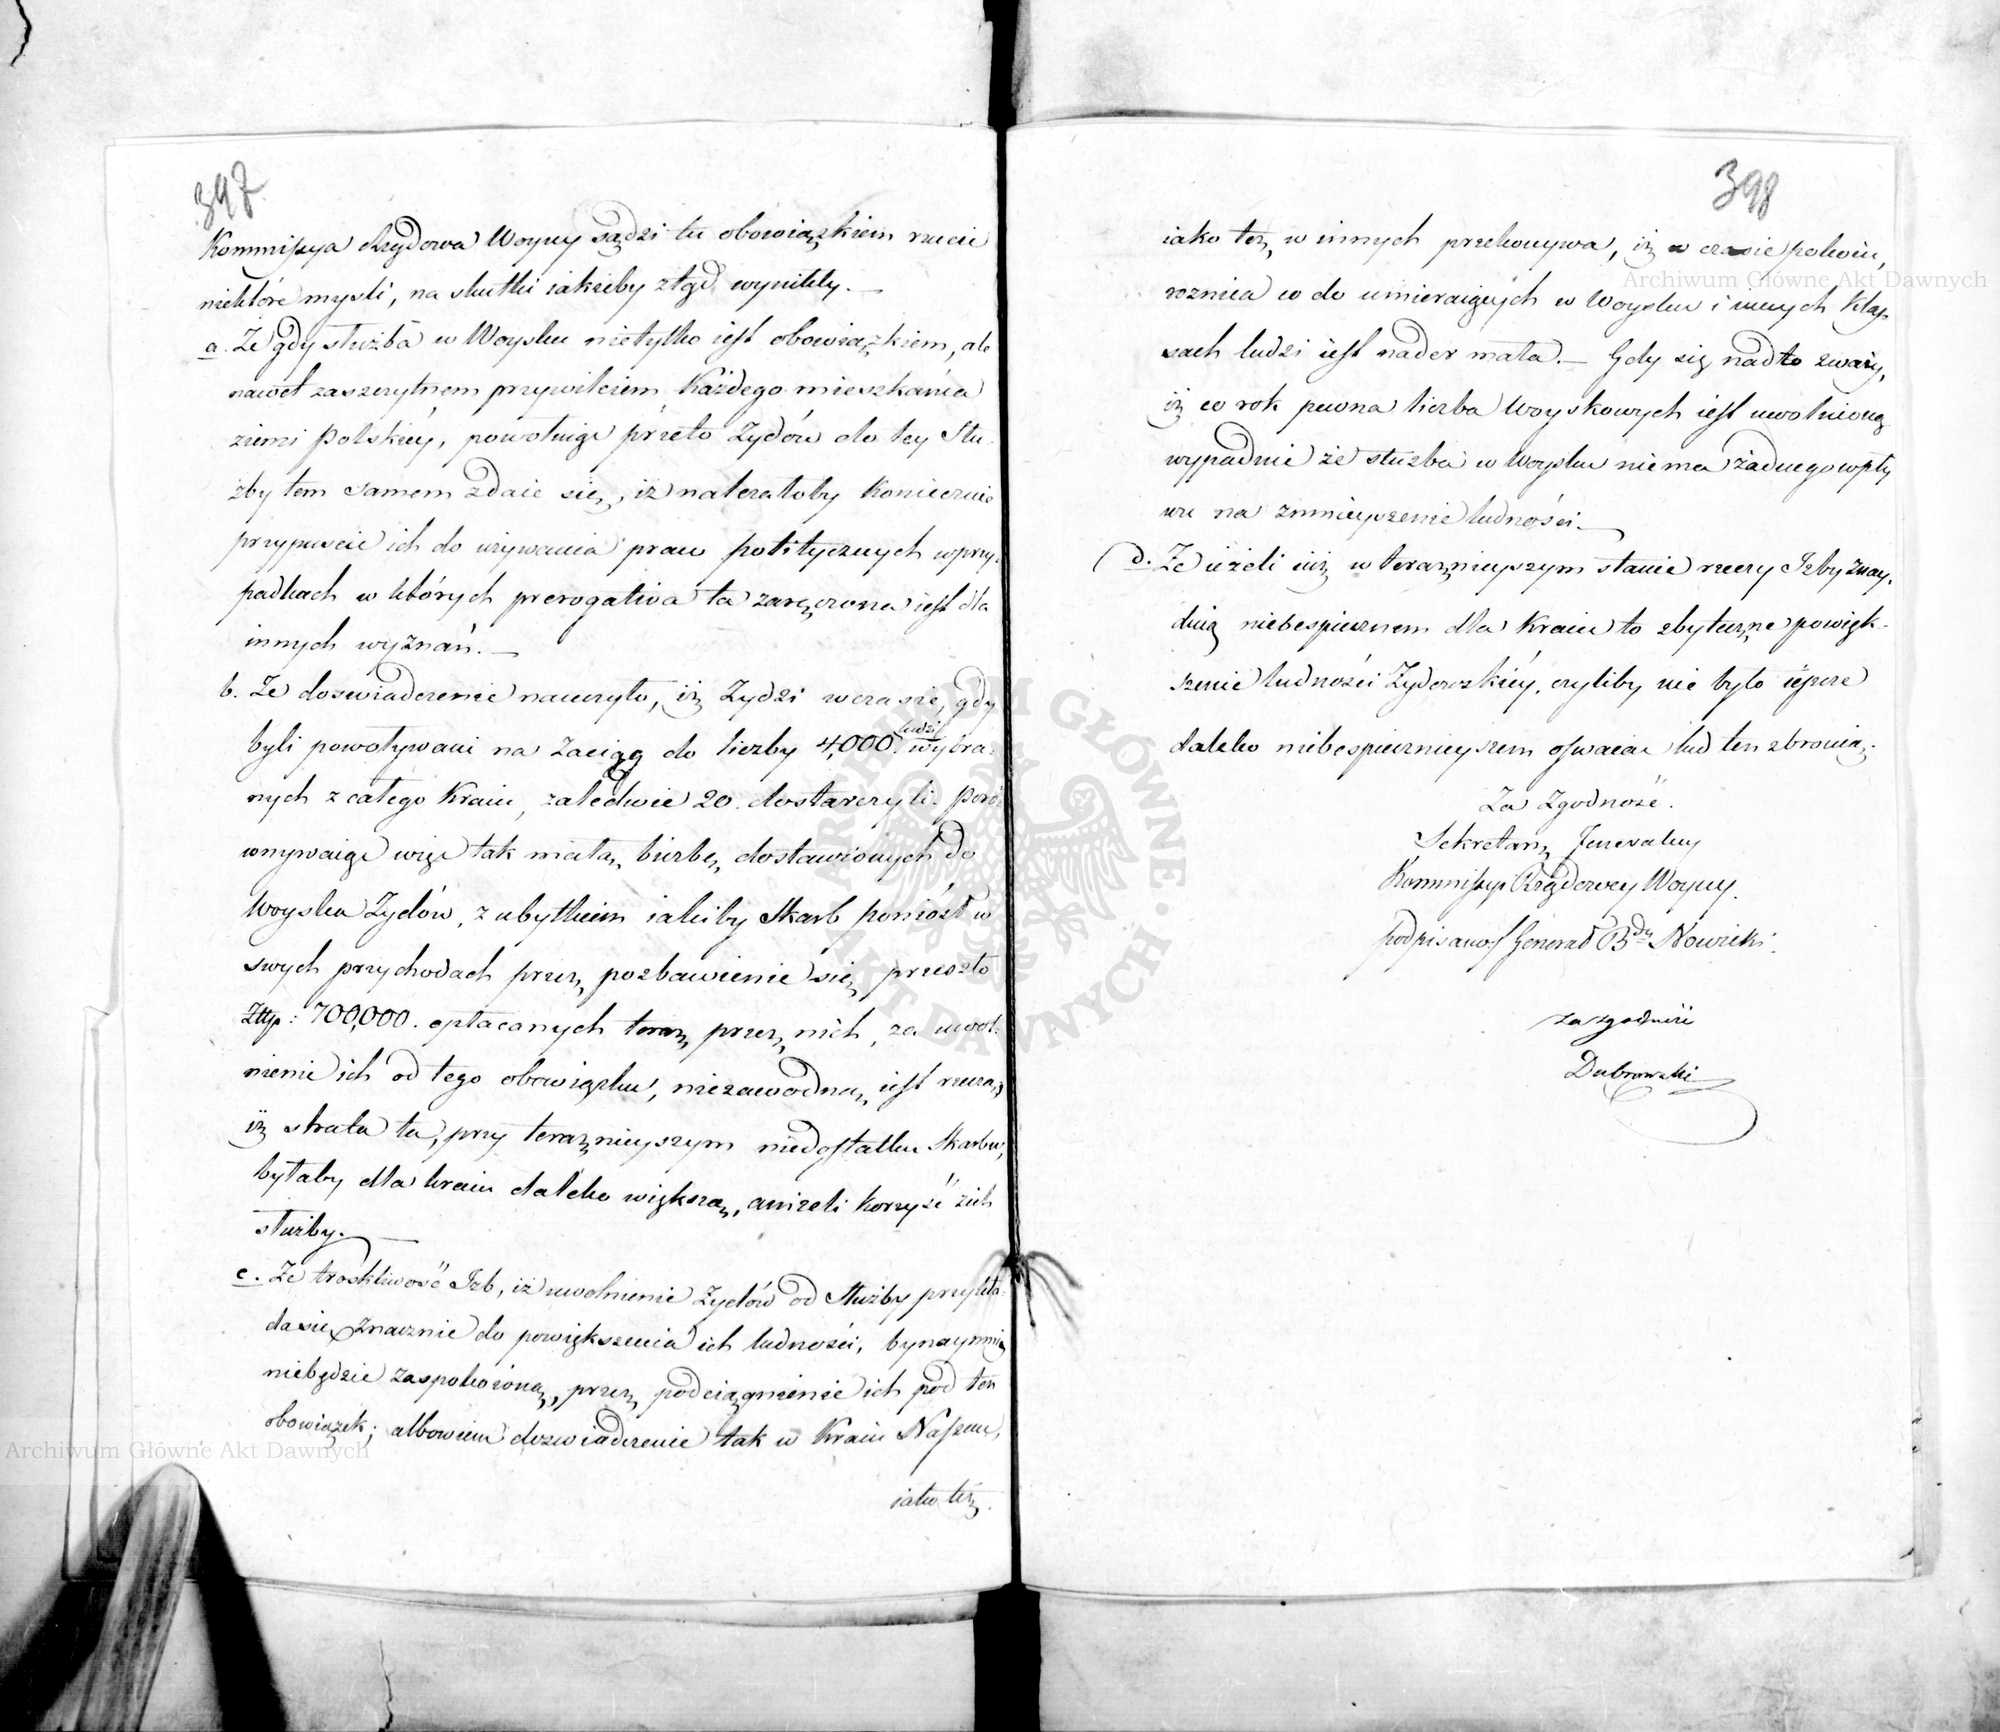 397.
Kommissya Rządowa Woyny sądzi tu obowiązkiem rzucić
niektóre mysli, na skutki iakieby ztąd wynikły. —
a. Że gdy służba w Woysku nietylko iest obowiązkiem, ale
nawet zaszczytnem przywileiem każdego mieszkańca
ziemi Polskiéy, powołuiąc przeto Żydów do tey Słu-
żby tem samem zdaie się, iż należałoby koniecznie
przypuścić ich do używania praw politycznych w przy-
padkach w których prerogatiwa ta zaręczona iest dla
innych wyznań. —
b. Że doświadczenie nauczyło, iż Żydzi w czasie, gdy
byli powoływani na Zaciąg do liczby 4,000 ludzi wybra-
nych z całego Kraiu, zaledwie 20. dostarczyli. Poró-
wnywaiąc więc tak małą liczbę dostawionych do
Woyska Żydów, z ubytkiem iakiby Skarb poniósł w
swych przychodach przez pozbawienie się przeszło
Złtp: 700,000. opłacanych teraz przez nich, za uwol-
nienie ich od tego obowiązku, niezawodną iest rzeczą,
iż strata ta, przy teraznieyszym niedostatku Skarbu,
byłaby dla kraiu daleko większą, aniżeli korzyść z ich
służby. —
c. Że troskliwość Izb, iż uwolnienie Żydów od Służby przykła-
da się znacznie do powiększenia ich ludności, bynaymniey
niebędzie zaspokoioną, przez podciągnienie ich pod ten
obowiązek; albowiem doświadczenie tak w Kraiu Naszem,
iako też.
398
iako też, w innych przekonywa, iż w czasie pokoiu,
roznica co do umieraiących w Woysku i innych klas-
sach ludzi iest nader mała. — Gdy się nadto zważy,
iż co rok pewna liczba Woyskowych iest uwolnioną
wypadnie że służba w Woysku niema żadnego wpły
wu na zmnieyszenie ludności. —
d. Że ieżeli iuż w teraznieyszym stanie rzeczy Izby znay-
duią niebespiecznem dla Kraiu to zbyteczne powięk-
szenie ludności Żydowskiéy, czyliby nie było ieszcze
daleko niebespiecznieyszem oswaiać lud ten z bronią.
Za Zgodność.
Sekretarz Jeneralny
Kommissyi Rządowey Woyny.
podpisano/ Generał Bdy Nowicki.
za zgodność
Dubrowski
ARCHIWUM GŁÓWNE AKT DAWNYCH
Archiwum Główne Akt Dawnych
Archiwum Główne Akt Dawnych